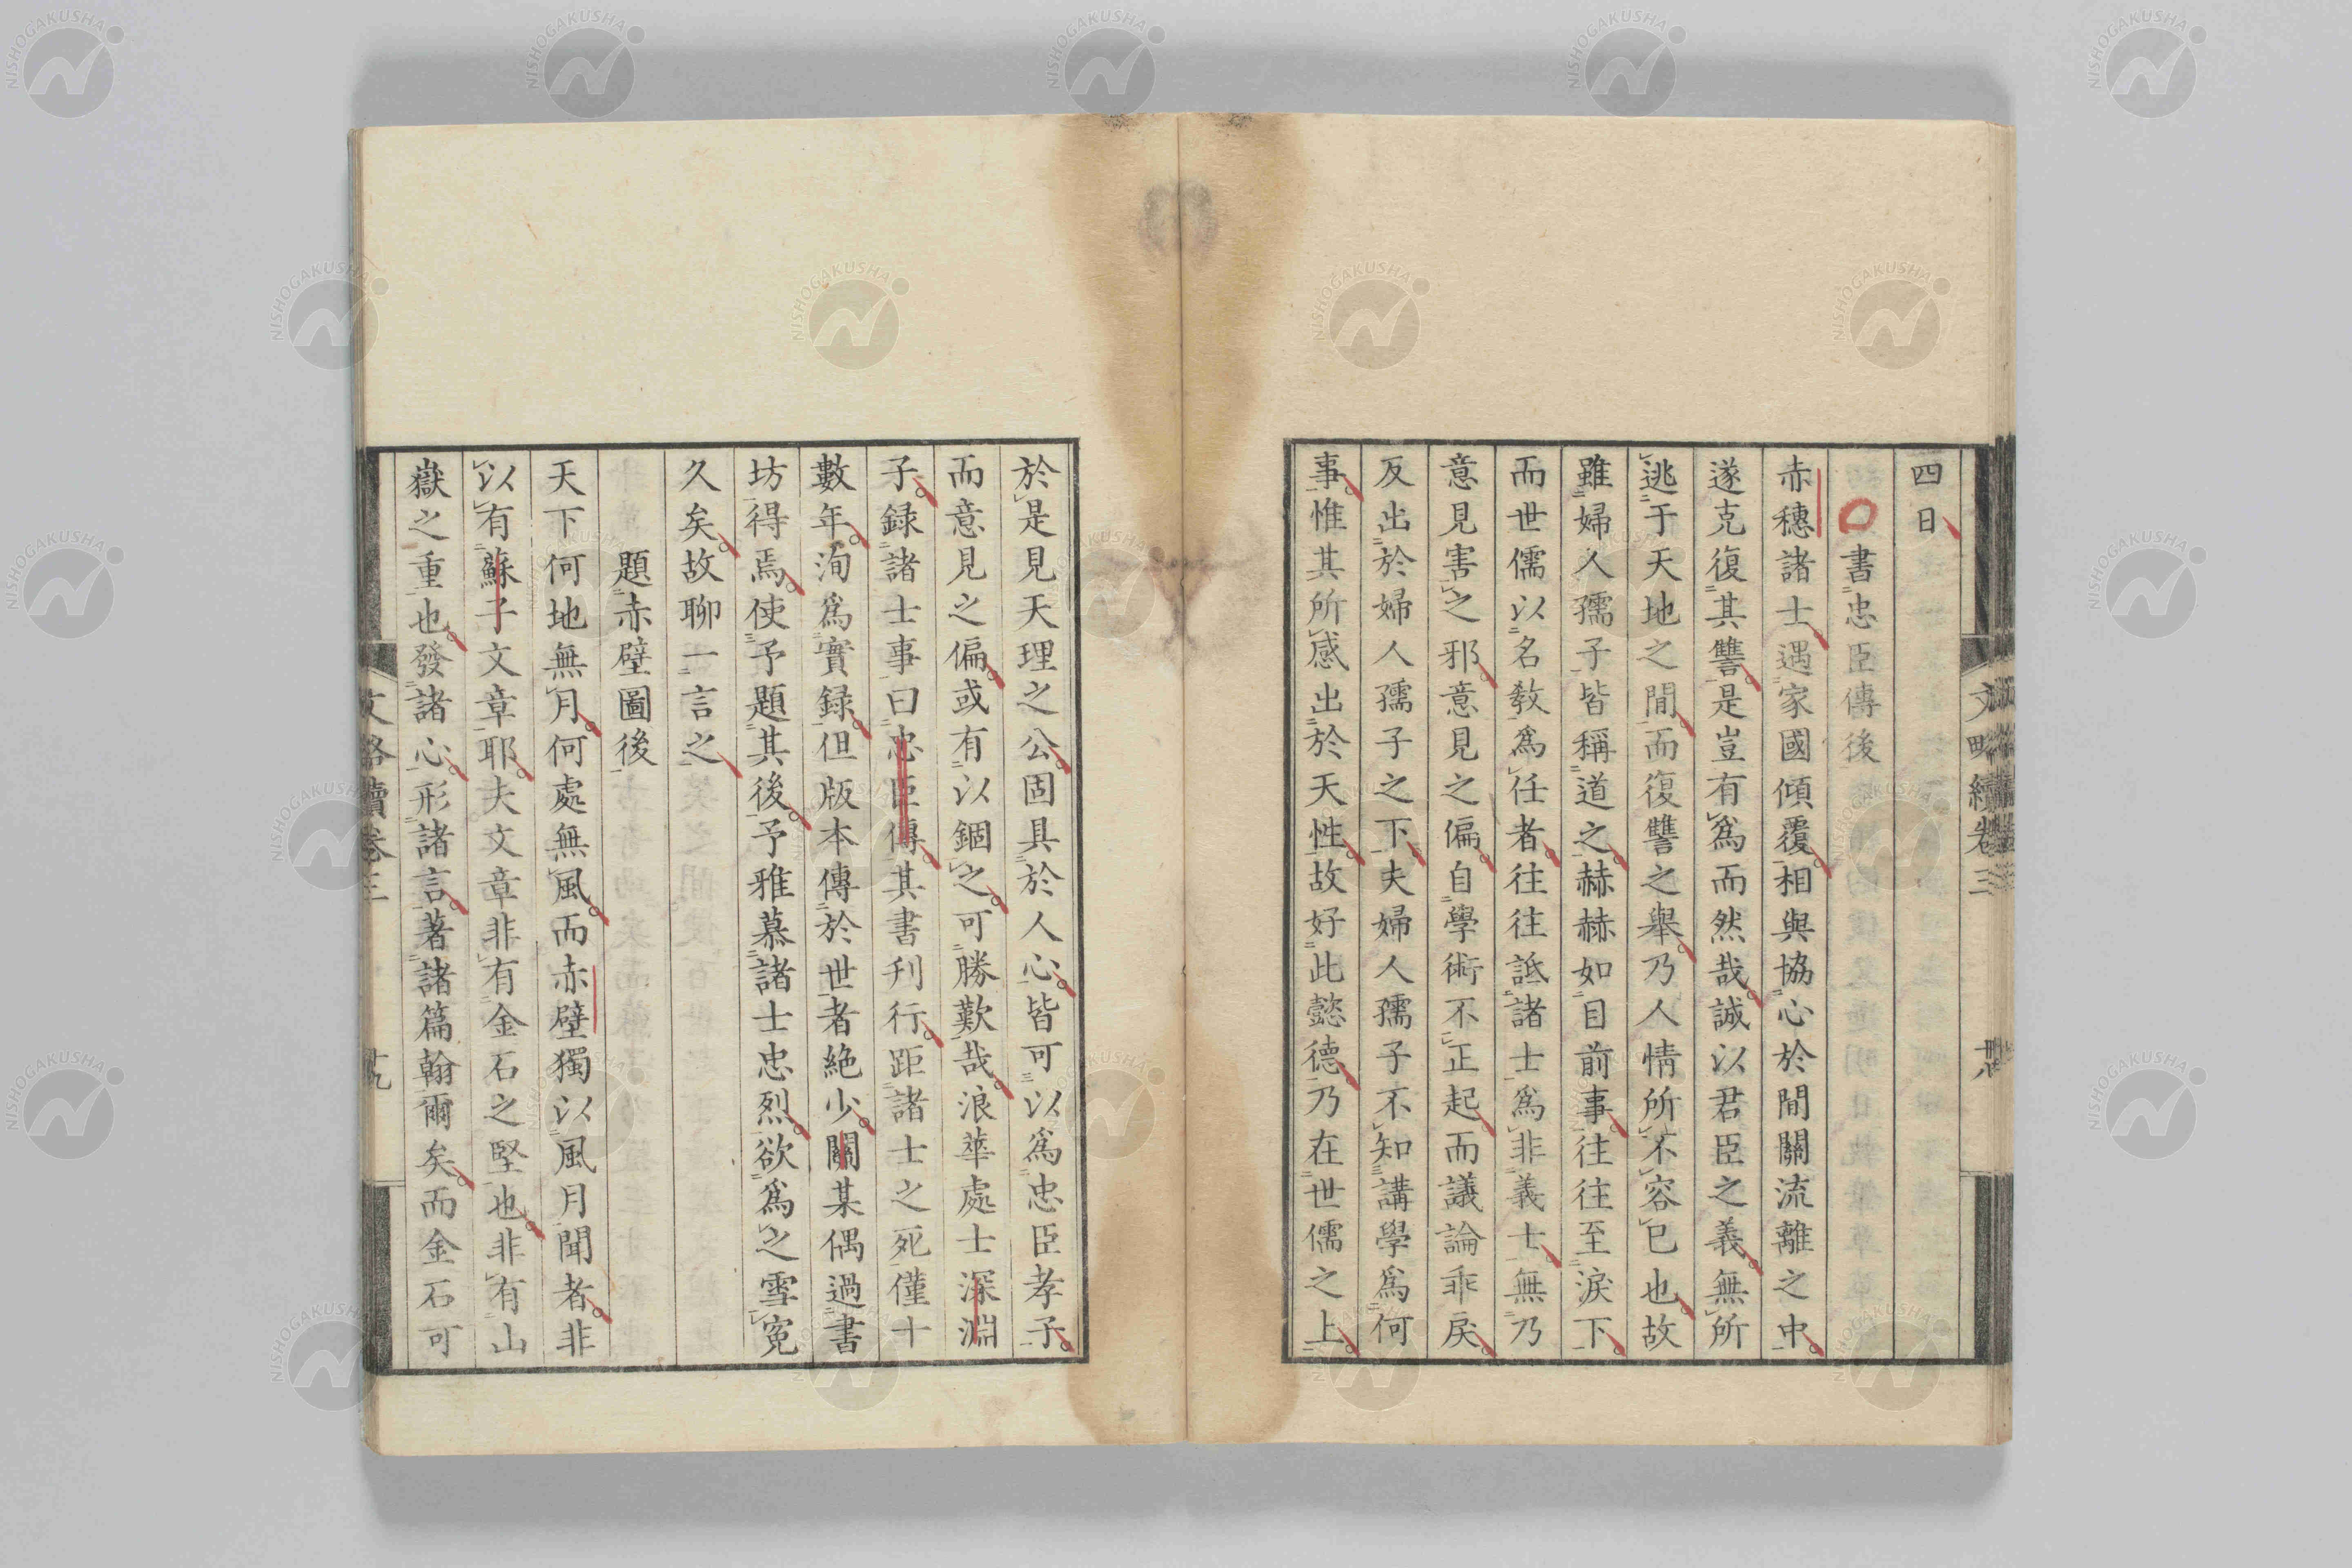 四日
書忠臣傳後
赤穗諸士遇家國傾覆相與協心於間關流離之中
遂克復其讐是豈有爲而然哉誠以君臣之義無所
逃于天地之間而復讐之舉乃人情所不容已也故
雖婦人孺子皆稱道之赫赫如目前事往往至淚下
而世儒以名教爲任者往往詆諸士爲非義士無乃
意見害之邪意見之偏自學術不正起而議論乖戾
反出於婦人孺子之下夫婦人孺子不知講學爲何
事惟其所感出於天性故好此懿德乃在世儒之上
文略續卷三
於是見天理之公固具於人心皆可以爲忠臣孝子
而意見之偏或有以錮之可勝歎哉浪華處士深淵
子録諸士事曰忠臣傳其書刊行距諸士之死僅十
數年洵爲實録但版本傳於世者絶少關某偶過書
坊得焉使予題其後予雅慕諸士忠烈欲爲之雪寃
久矣故聊一言之
題赤壁圖後
天下何地無月何處無風而赤壁獨以風月聞者非
以有蘇子文章耶夫文章非有金石之堅也非有山
嶽之重也發諸心形諸言著諸篇翰爾矣而金石可
文略續卷三
NISHOGAKUSHA